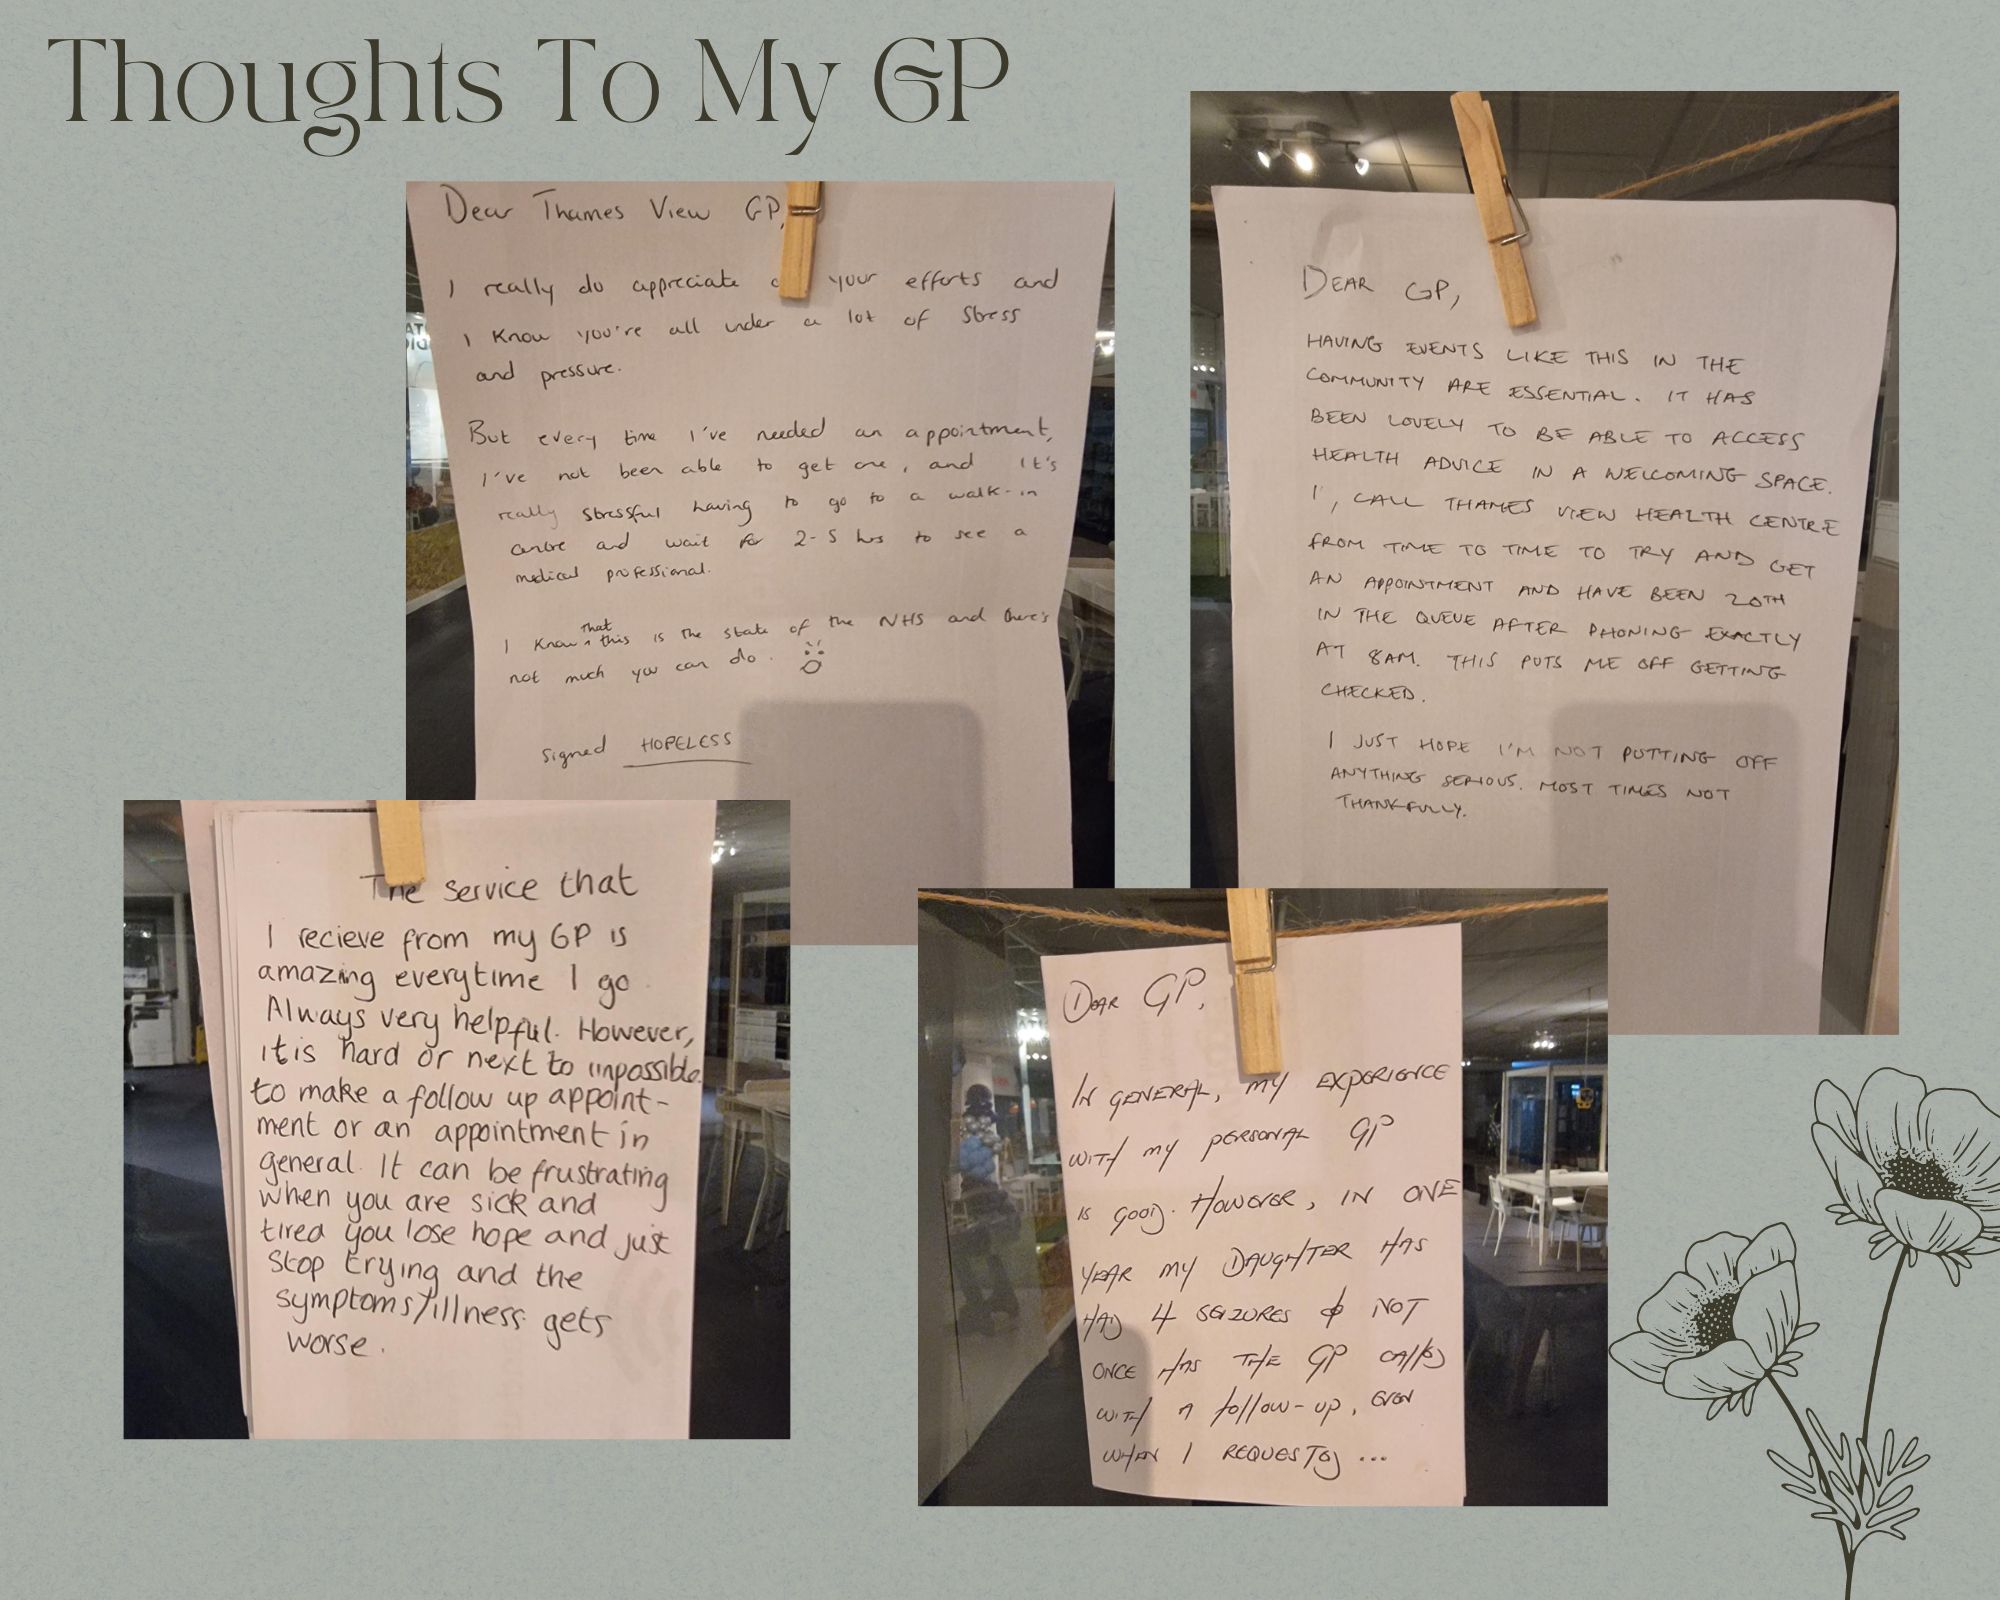 Thoughts To My GP
Dear Thames View GP,
I really do appreciate your efforts and
I know you're all under a lot of stress
and pressure.
But every time I've needed an appointment,
I've not been able to get one, and it's
really stressful having to go to a walk-in
centre and wait for 2-5 hrs to see a
medical professional.
I know that this is the state of the NHS and there's
not much you can do.
signed HOPELESS
DEAR GP,
HAVING EVENTS LIKE THIS IN THE
COMMUNITY ARE ESSENTIAL. IT HAS
BEEN LOVELY TO BE ABLE TO ACCESS
HEALTH ADVICE IN A WELCOMING SPACE.
I, CALL THAMES VIEW HEALTH CENTRE
FROM TIME TO TIME TO TRY AND GET
AN APPOINTMENT AND HAVE BEEN 20TH
IN THE QUEUE AFTER PHONING EXACTLY
AT 8AM. THIS PUTS ME OFF GETTING
CHECKED.
I JUST HOPE I'M NOT PUTTING OFF
ANYTHING SERIOUS. MOST TIMES NOT
THANKFULLY.
The service that
I recieve from my GP is
amazing everytime I go.
Always very helpful. However,
it is hard or next to impossible
to make a follow up appoint-
ment or an appointment in
general. It can be frustrating
when you are sick and
tired you lose hope and just
stop trying and the
symptoms/illness gets
worse.
DEAR GP,
IN GENERAL, MY EXPERIENCE
WITH MY PERSONAL GP
IS GOOD. HOWEVER, IN ONE
YEAR MY DAUGHTER HAS
HAD 4 SEIZURES & NOT
ONCE HAS THE GP CALLED
WITH A FOLLOW-UP, EVEN
WHEN I REQUESTED...